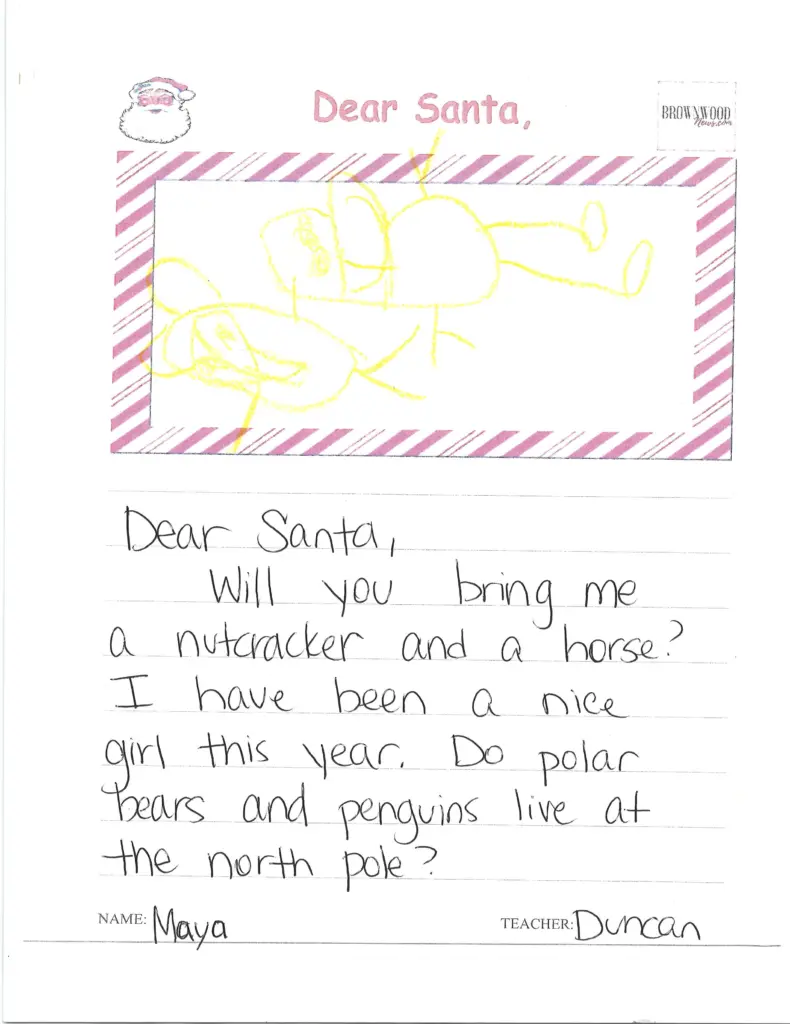 Dear Santa,
BROWNWOOD
News.com
Dear Santa,
Will you bring me
a nutcracker and a horse?
I have been a nice
girl this year. Do polar
bears and penguins live at
the north pole?
NAME: Maya TEACHER: Duncan